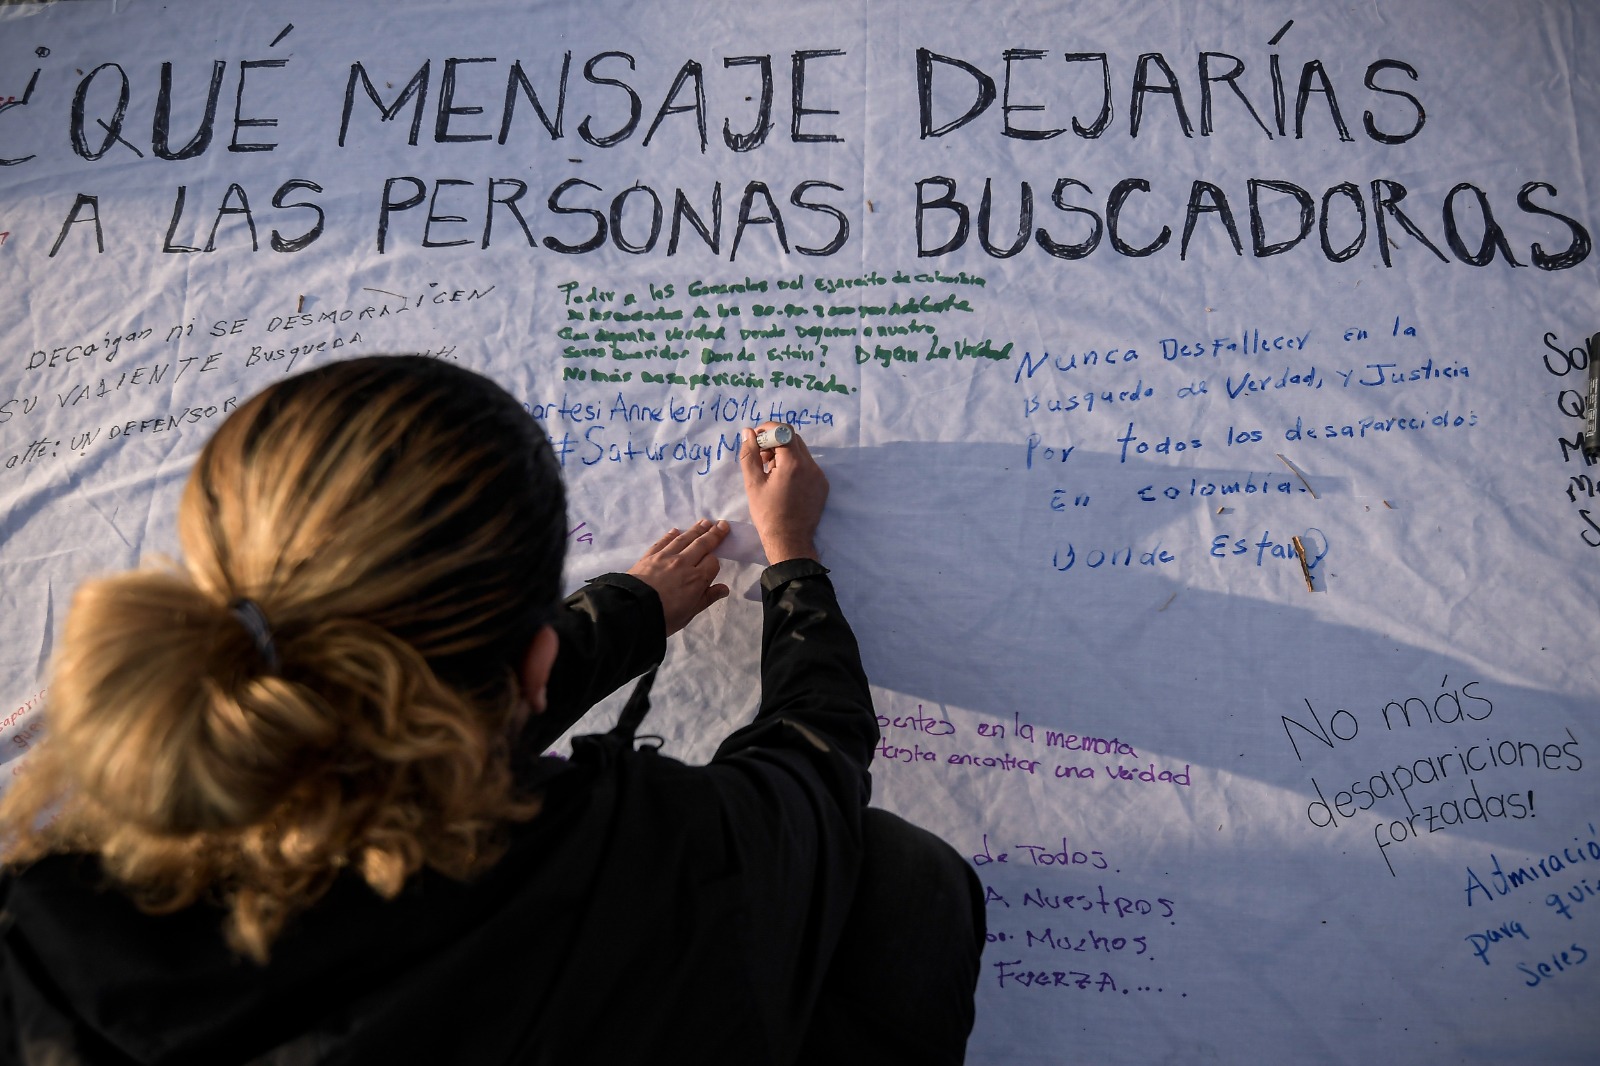 ¿QUÉ MENSAJE DEJARÍAS
A LAS PERSONAS BUSCADORAS
DECaigan ni SE DESMORALICEN
SU VALIENTE BUSQUEDA
atte: UN DEFENSOR
Pedir a los Generales Del Ejercito de Colombia
Que digan la Verdad Donde Dejaron a nuestro
Seres Queridos Donde Están? Digan La Verdad
No más Desaparición Forzada.
Anneleri 1014 Hafta
#SaturdayM
Nunca Desfallecer en la
Busqueda de Verdad, y Justicia
Por todos los desaparecidos
En colombia.
Donde Estan?
sentes en la memoria
Hasta encontrar una Verdad
de Todos.
A NuestROS
Muchos.
FUERZA.....
No más
desapariciones
forzadas!
Admiració
para qui
seres